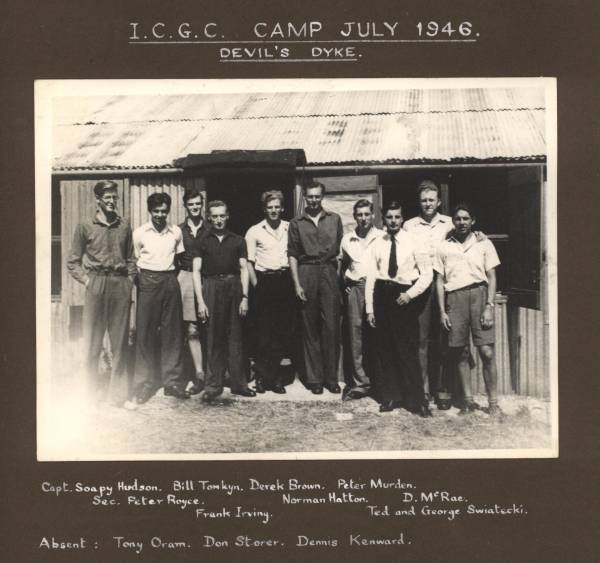 I.C.G.C. CAMP JULY 1946.
DEVIL'S DYKE.
Capt. Soapy Hudson. Bill Tomkyn. Derek Brown. Peter Murden.
Sec. Peter Royce. Norman Hatton. D. McRae.
Frank Irving. Ted and George Swiatecki.
Absent : Tony Oram. Don Storer. Dennis Kenward.